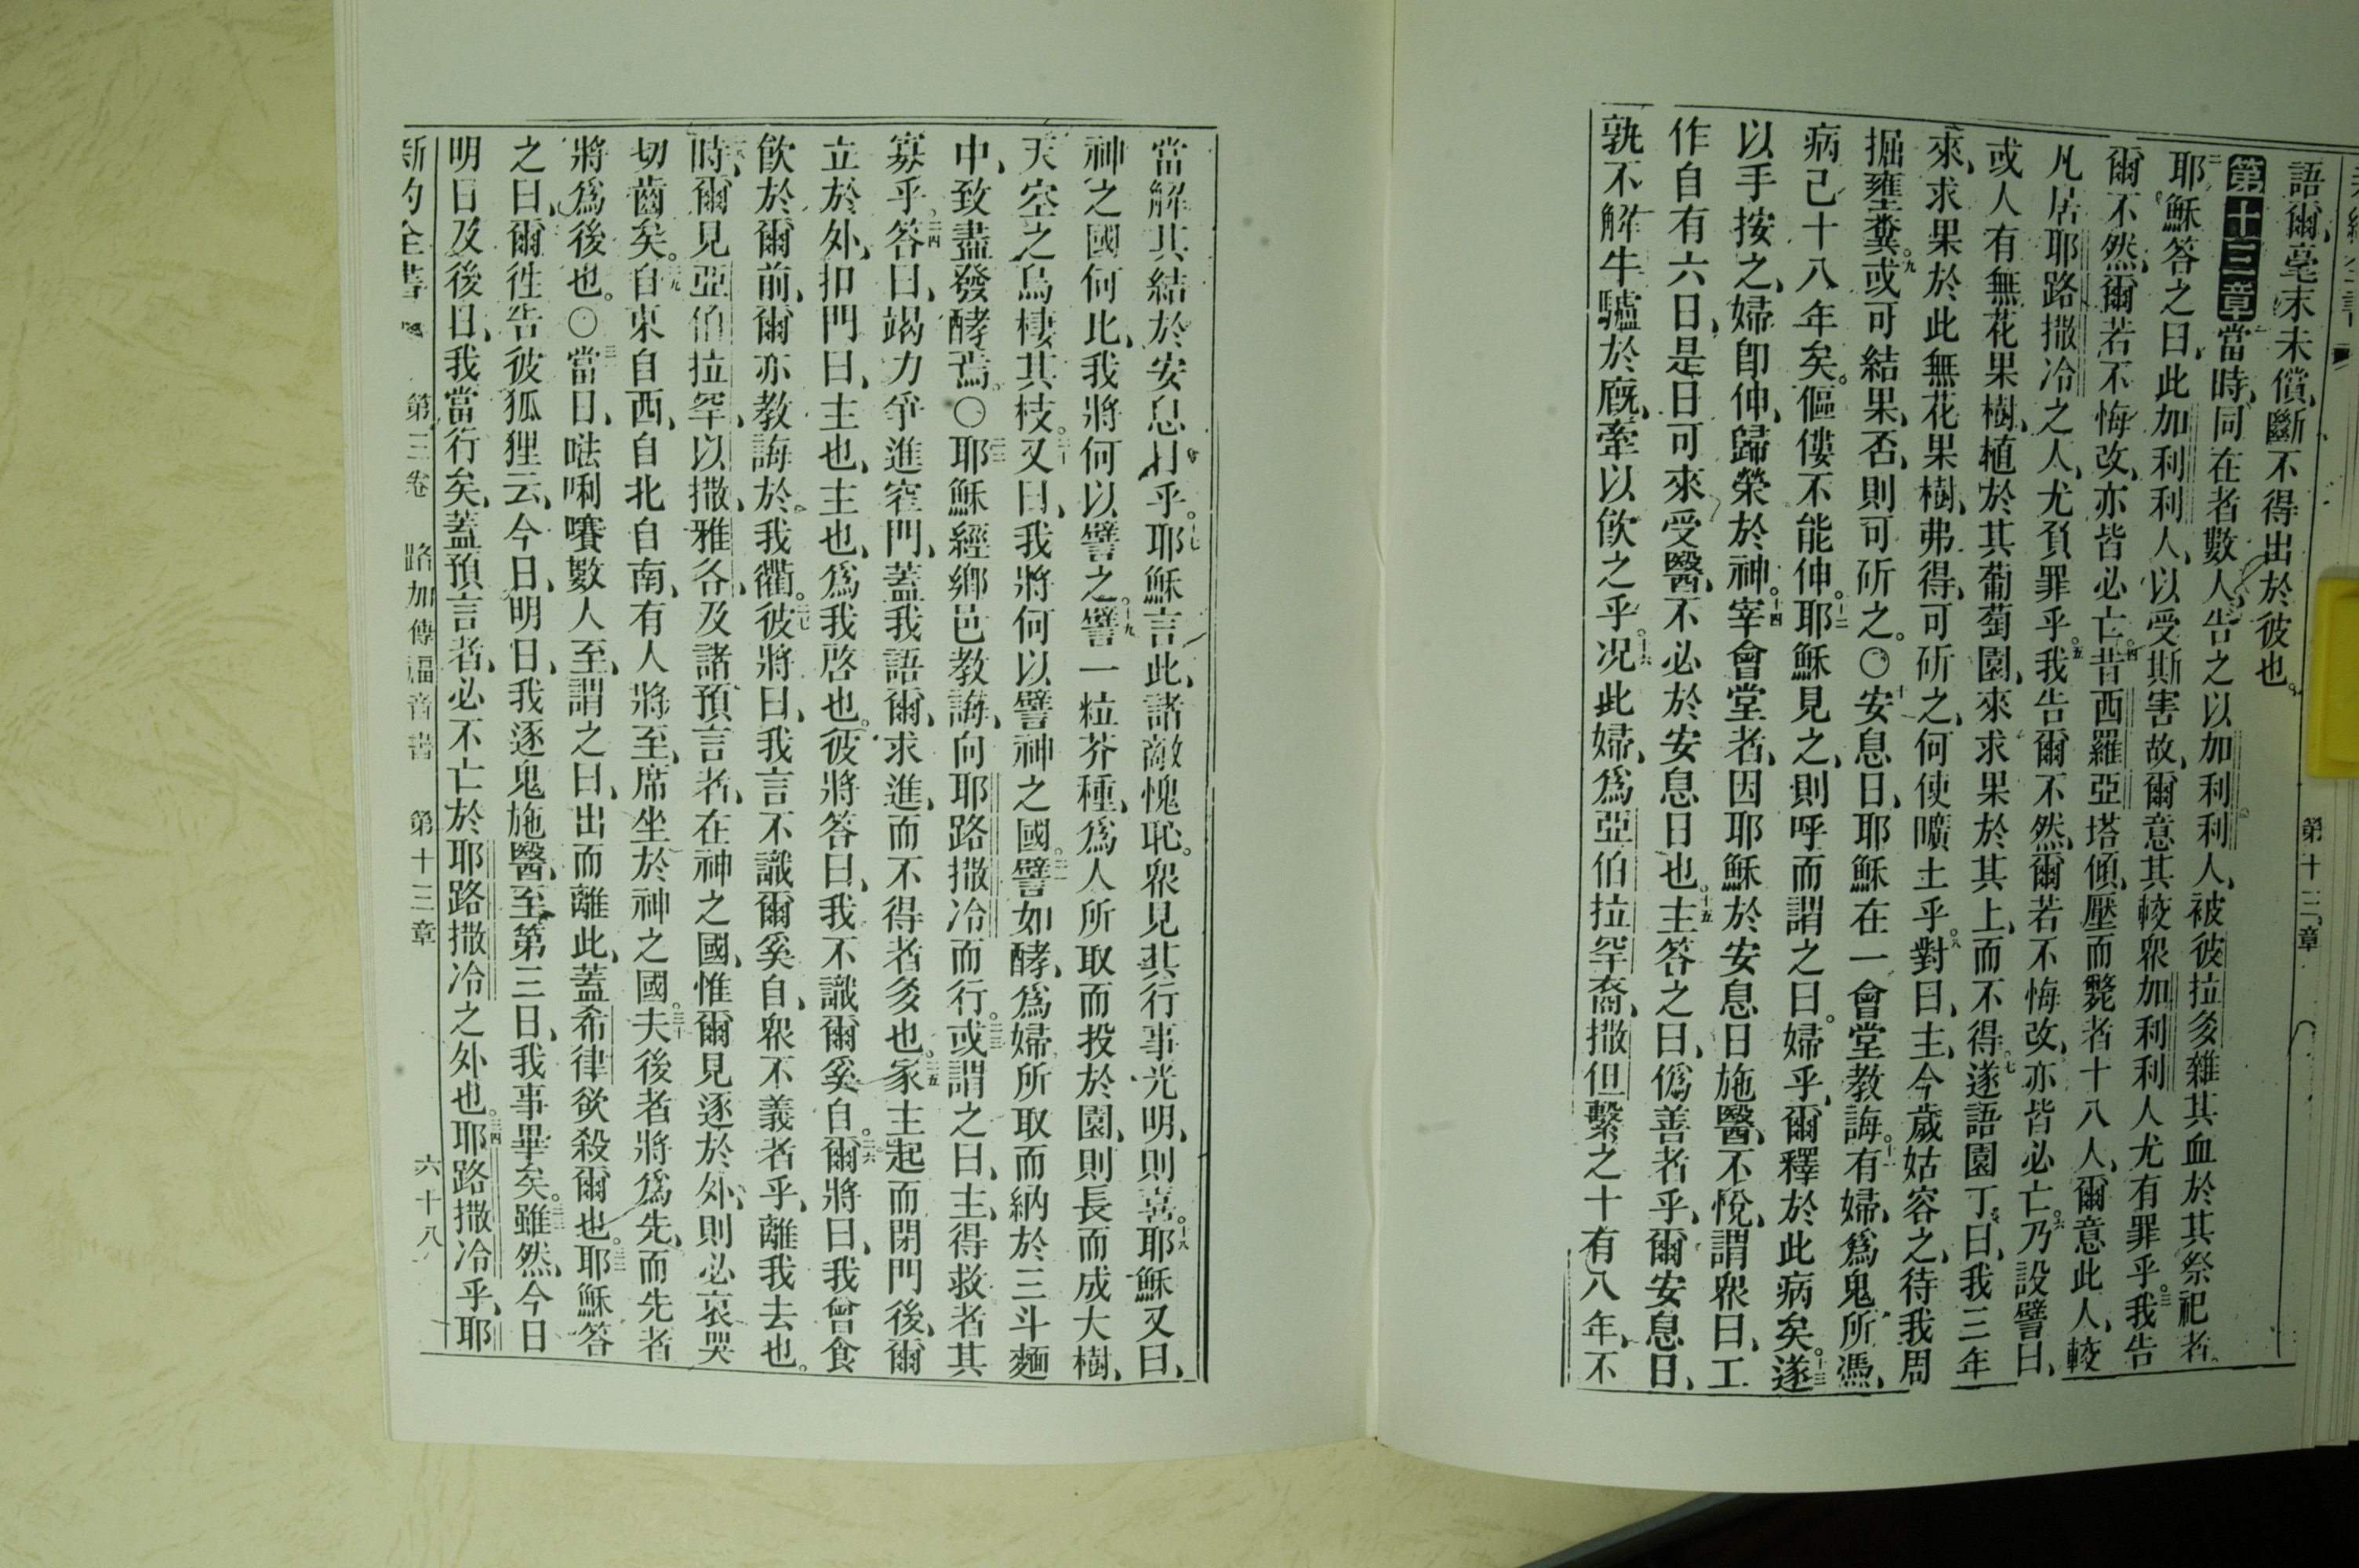 第十三章
語爾、毫末未償、斷不得出於彼也。
第十三章 一當時、同在者數人、告之以加利利人、被彼拉多雜其血於其祭祀者。
二耶穌答之曰、此加利利人、以受斯害故、爾意其較眾加利利人尤有罪乎。三我告
爾不然、爾若不悔改、亦皆必亡。四昔西羅亞塔傾、壓而斃者十八人、爾意此人、較
凡居耶路撒冷之人、尤負罪乎。五我告爾不然、爾若不悔改、亦皆必亡。六乃設譬曰、
或人有無花果樹、植於其葡萄園、來求果於其上、而不得。七遂語園丁曰、我三年
來、求果於此無花果樹、弗得、可斫之、何使曠土乎。八對曰、主、今歲姑容之、待我周
掘壅糞。九或可結果、否、則可斫之。〇十安息日、耶穌在一會堂教誨。十一有婦、為鬼所憑、
病已十八年矣。傴僂不能伸。十二耶穌見之、則呼而謂之曰。婦乎、爾釋於此病矣。十三遂
以手按之、婦即伸、歸榮於神。十四宰會堂者、因耶穌於安息日施醫、不悅、謂眾曰、工
作自有六日、是日可來受醫、不必於安息日也。十五主答之曰、偽善者乎、爾安息日、
孰不解牛驢於廐、牽以飲之乎。十六况此婦、為亞伯拉罕裔、撒但繫之十有八年、不
當解其結於安息日乎。十七耶穌言此、諸敵愧恥。眾見其行事光明、則喜。十八耶穌又曰、
神之國何比、我將何以譬之。十九譬一粒芥種、為人所取而投於園、則長而成大樹、
天空之鳥棲其枝。二十又曰、我將何以譬神之國。二一譬如酵、為婦所取而納於三斗麵
中、致盡發酵焉。〇二二耶穌經鄉邑教誨、向耶路撒冷而行。二三或謂之曰、主、得救者其
寡乎。二四答曰、竭力爭進窄門、蓋我語爾、求進、而不得者多也。二五家主起而閉門後、爾
立於外、扣門曰、主也、主也、為我啓也。彼將答曰、我不識爾奚自。二六爾將曰、我曾食
飲於爾前、爾亦教誨於我衢。二七彼將曰、我言不識爾奚自、眾不義者乎、離我去也。
二八時、爾見亞伯拉罕、以撒、雅各、及諸預言者、在神之國、惟爾見逐於外、則必哀哭
切齒矣。二九自東自西、自北自南、有人將至、席坐於神之國。三十夫後者將為先、而先者
將為後也。〇三一當日、𠵽唎㘔數人至、謂之曰、出而離此、蓋希律欲殺爾也。三二耶穌答
之曰、爾徃告彼狐狸云、今日、明日、我逐鬼施醫、至第三日、我事畢矣。三三雖然、今日
明日及後日、我當行矣、蓋預言者、必不亡於耶路撒冷之外也。三四耶路撒冷乎、耶
新約全書 第三卷 路加傳福音書 第十三章 六十八